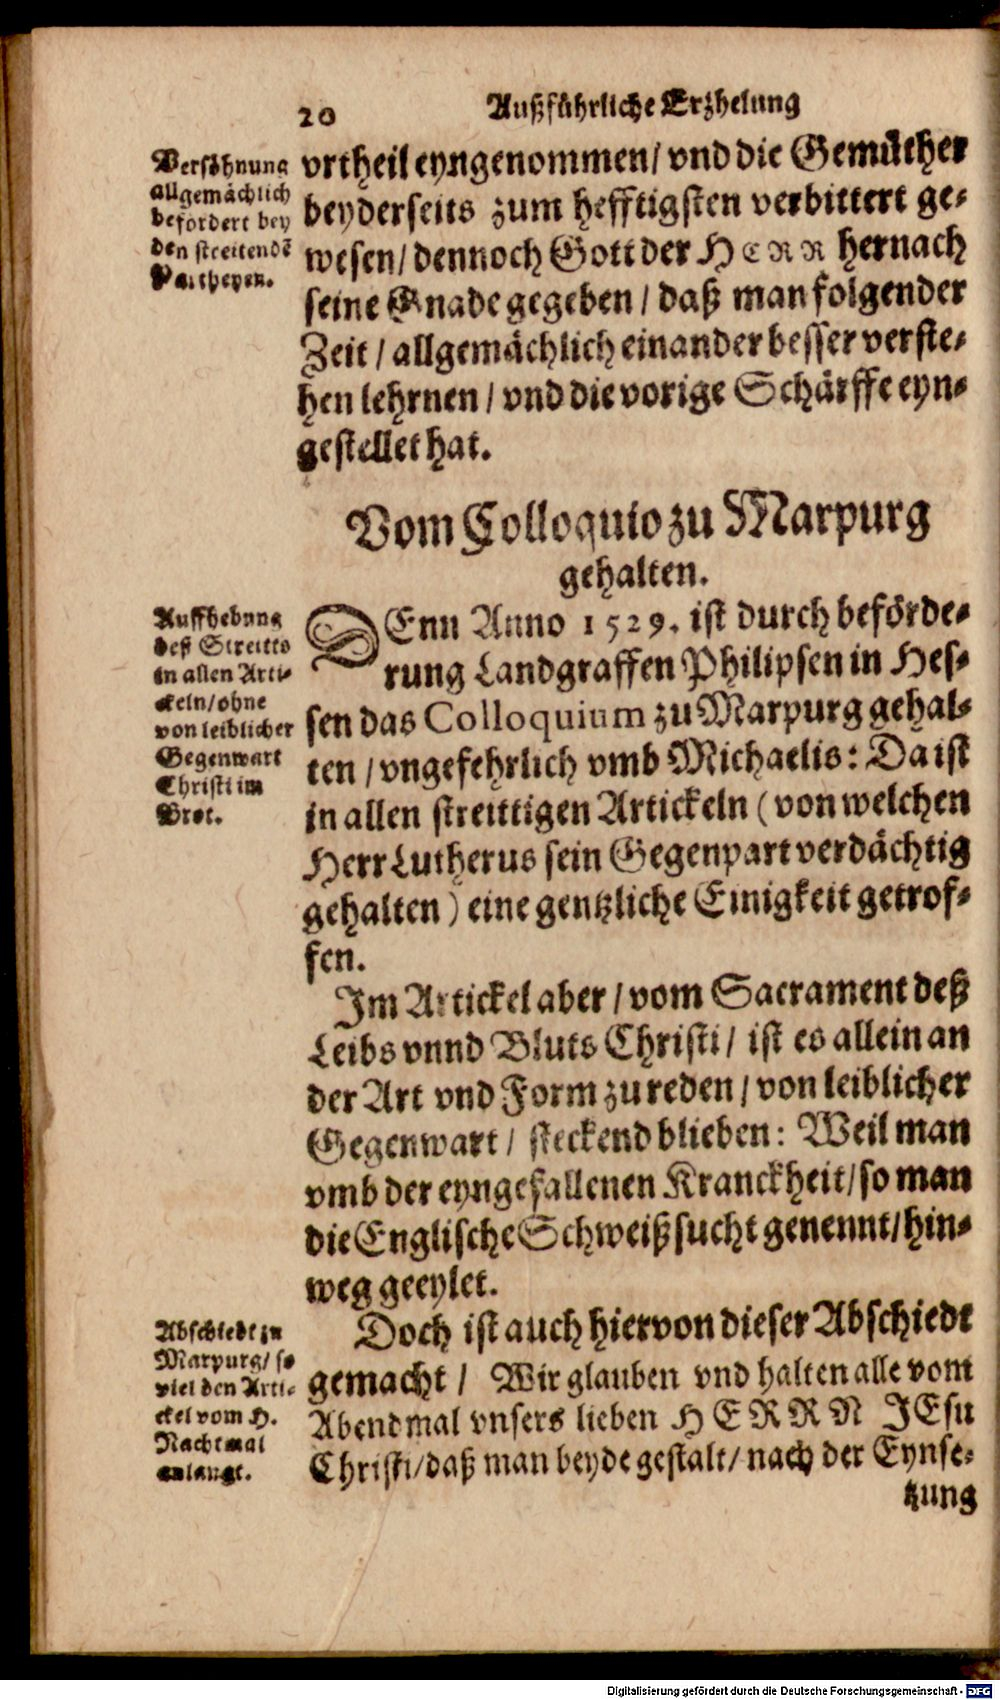 20
Außführliche Erzhelung
Versöhnung
allgemächlich
befördert bey
den streitendẽ
Partheyen.
vrtheil eyngenommen/ vnd die Gemüther
beyderseits zum hefftigsten verbittert ge-
wesen/ dennoch Gott der HERR hernach
seine Gnade gegeben/ daß man folgender
Zeit/ allgemächlich einander besser verste-
hen lehrnen/ vnd die vorige Schärffe eyn-
gestellet hat.
Vom Colloquio zu Marpurg
gehalten.
Auffhebung
deß Streitts
in allen Arti-
ckeln/ ohne
von leiblicher
Gegenwart
Christi im
Brot.
DEnn Anno 1529. ist durch beförde-
rung Landgraffen Philipsen in Hes-
sen das Colloquium zu Marpurg gehal-
ten/ vngefehrlich vmb Michaelis: Da ist
in allen streittigen Artickeln (von welchen
Herr Lutherus sein Gegenpart verdächtig
gehalten) eine gentzliche Einigkeit getrof-
fen.
Im Artickel aber/ vom Sacrament deß
Leibs vnnd Bluts Christi/ ist es allein an
der Art vnd Form zu reden/ von leiblicher
Gegenwart/ steckend blieben: Weil man
vmb der eyngefallenen Kranckheit/ so man
die Englische Schweißsucht genennt/ hin-
weg geeylet.
Abschiedt zu
Marpurg/ so
viel den Arti-
ckel vom H.
Nachtmal
anlangt.
Doch ist auch hiervon dieser Abschiedt
gemacht/ Wir glauben vnd halten alle vom
Abendmal vnsers lieben HERRN JEsu
Christi/ daß man beyde gestalt/ nach der Eynse-
tzung
Digitalisierung gefördert durch die Deutsche Forschungsgemeinschaft - DFG